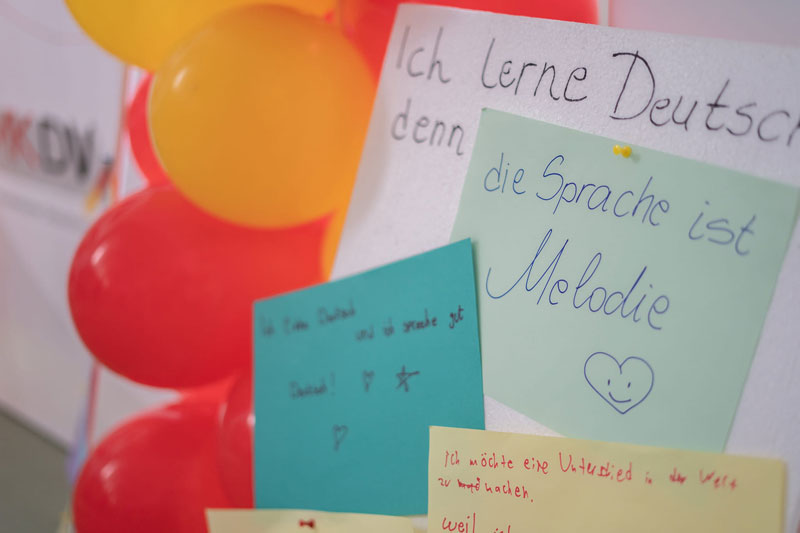 Ich lerne Deutsch
denn
die Sprache ist
Melodie
Ich Deutsch
und ich spreche gut
Deutsch!
Ich möchte eine Unterschied in der Welt
zu machen.
weil
KDV